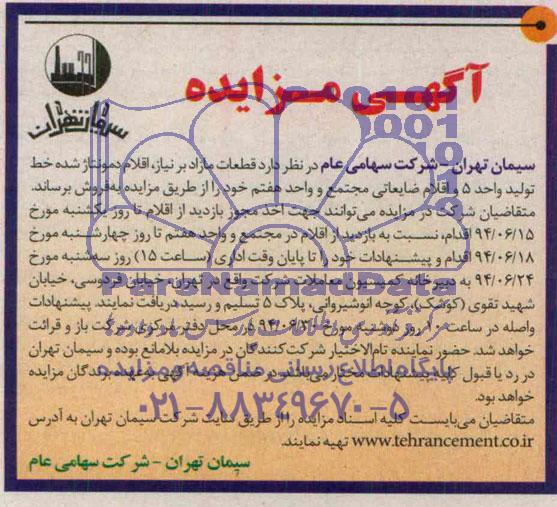 آگهی مزایده
سیمان تهران
سیمان تهران – شرکت سهامی عام در نظر دارد قطعات مازاد بر نیاز، اقلام دمونتاژ شده خط
تولید واحد ۵ و اقلام ضایعاتی مجتمع و واحد هفتم خود را از طریق مزایده به‌فروش برساند.
متقاضیان شرکت در مزایده می‌توانند جهت اخذ مجوز بازدید از اقلام تا روز یکشنبه مورخ
۹۴/۰۶/۱۵ اقدام، نسبت به بازدید از اقلام در مجتمع و واحد هفتم تا روز چهارشنبه مورخ
۹۴/۰۶/۱۸ اقدام و پیشنهادات خود را تا پایان وقت اداری (ساعت ۱۵) روز سه‌شنبه مورخ
۹۴/۰۶/۲۴ به دبیرخانه کمیسیون معاملات شرکت واقع در تهران، خیابان فردوسی، خیابان
شهید تقوی (کوشک)، کوچه انوشیروانی، پلاک ۵ تسلیم و رسید دریافت نمایند. پیشنهادات
واصله در ساعت ۱۰ روز دوشنبه مورخ ۹۴/۰۶/۳۰ در محل دفتر مرکزی شرکت باز و قرائت
خواهد شد. حضور نماینده تام‌الاختیار شرکت‌کنندگان در مزایده بلامانع بوده و سیمان تهران
در رد یا قبول کلیه پیشنهادات مختار می‌باشد. در ضمن هزینه آگهی به عهده برندگان مزایده
خواهد بود.
متقاضیان می‌بایست کلیه اسناد مزایده را از طریق سایت شرکت سیمان تهران به آدرس
www.tehrancement.co.ir تهیه نمایند.
سیمان تهران – شرکت سهامی عام
ParsNamadData
پایگاه اطلاع رسانی مناقصه و مزایده
۰۲۱-۸۸۳۴۹۶۷۰-۵